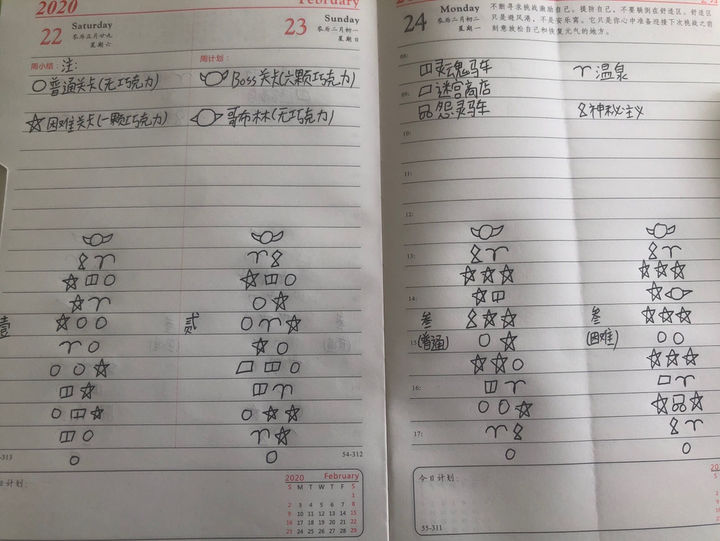 2020
February
22
Saturday
农历正月廿九
星期六
23
Sunday
农历二月初一
星期日
周小结:
注:
周计划:
普通关卡(无巧克力)
Boss关卡(六颗巧克力)
困难关卡(一颗巧克力)
哥布林(无巧克力)
壹
贰
54-312
2020 February
S M T W T F S
1
2 3 4 5 6 7 8
9 10 11 12 13 14 15
16 17 18 19 20 21 22
23 24 25 26 27 28 29
24
Monday
农历二月初二
星期一
不断寻求挑战激励自己。提防自己,不要躺倒在舒适区。舒适区
只是避风港,不是安乐窝。它只是你心中准备迎接下次挑战之前
刻意放松自己和恢复元气的地方。
灵魂马车
温泉
09:
迷宫商店
怨灵马车
神秘主义
10:
11:
12:
13:
14:
叁
叁
15:
(普通)
(困难)
16:
17:
今日计划:
55-311